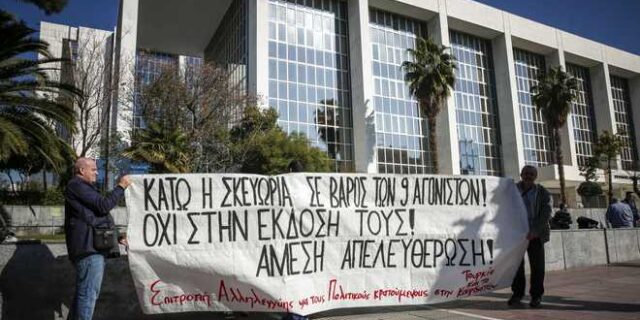 ΚΑΤΩ Η ΣΚΕΥΩΡΙΑ ΣΕ ΒΑΡΟΣ ΤΩΝ 9 ΑΓΩΝΙΣΤΩΝ!
ΟΧΙ ΣΤΗΝ ΕΚΔΟΣΗ ΤΟΥΣ!
ΑΜΕΣΗ ΑΠΕΛΕΥΘΕΡΩΣΗ!
Επιτροπή Αλληλεγγύης για τους Πολιτικούς κρατούμενους στην Τουρκία και το Κουρδιστάν